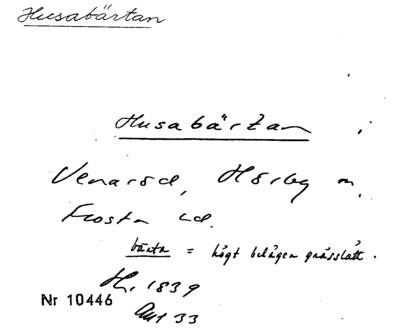 Husabärtan
Husabärtan
Venaröd, Hörby
Frosta
bärta = högt belägen grässlätt.
H. 1839
Nr 10446
33